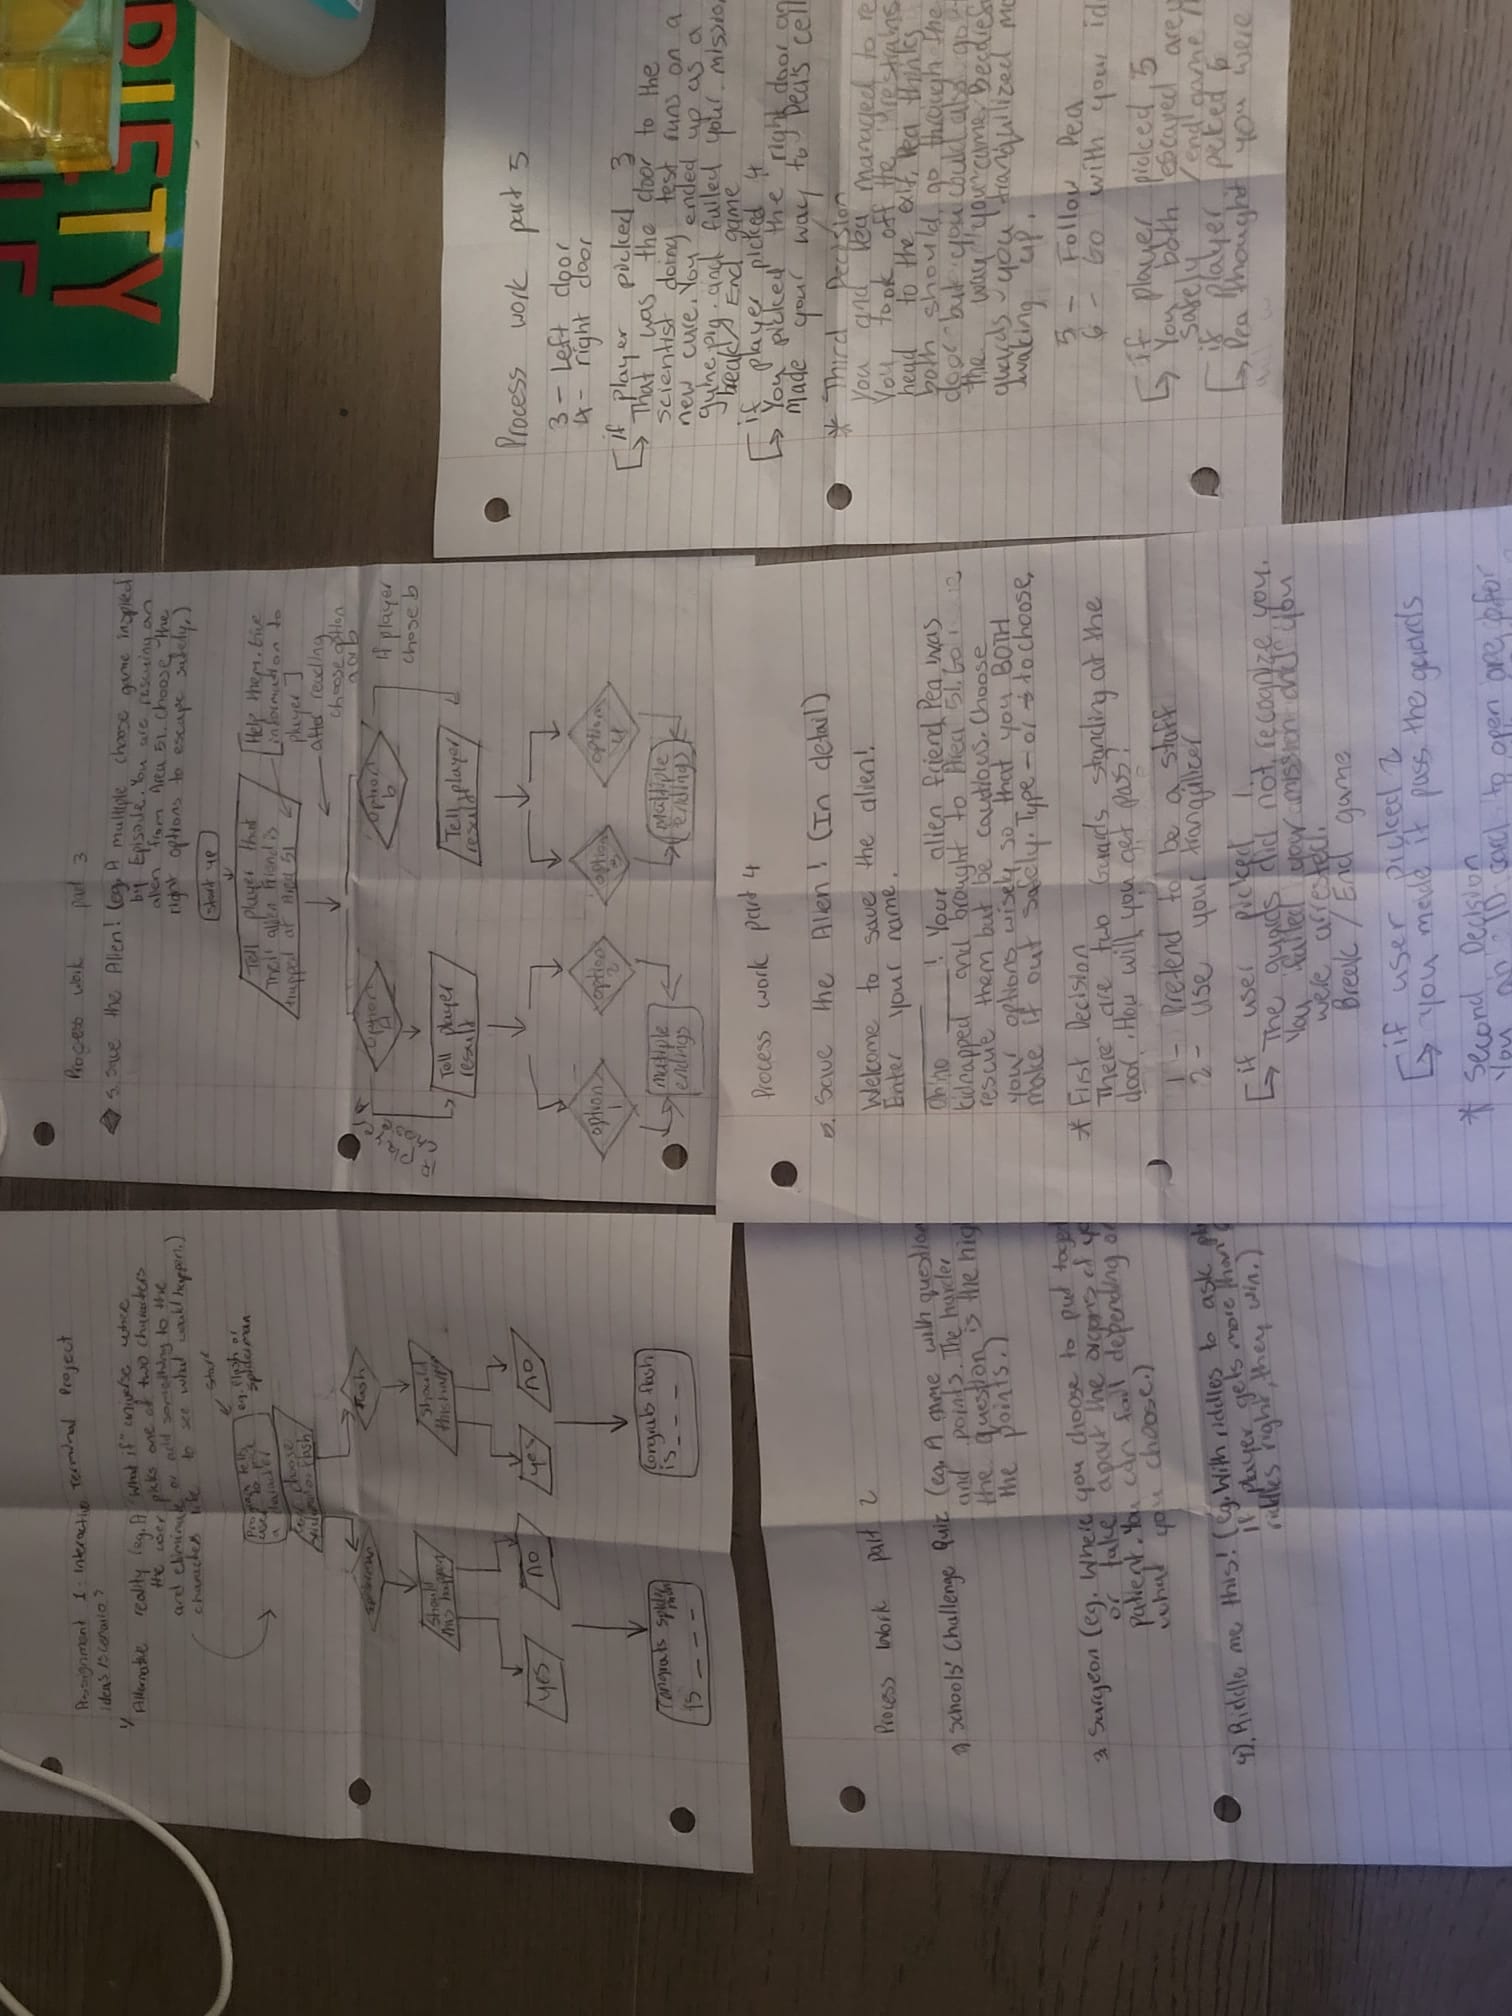 Assignment 1 - Interactive Terminal Project
ideas/scenario?
1) Alternative reality (eg. A "what if" universe where
the user picks one of two characters
and eliminate or add something to the
characters life to see what would happen.)
start
Program tells
user to pick
a character
eg. flash or
spiderman
user choose
spiderman or flash
spiderman
flash
should
this happen
should
this happ
yes
no
yes
no
congrats spider
man
is _ _ _ _
congrats flash
is _ _ _ _
Process work part 2
2) Schools' Challenge Quiz (eg. A game with question
and points. The harder
the question, is the hig
the points.)
3. Surgeon (eg. Where you choose to put toget
or take apart the organs of yo
patient. You can fail depending on
what you choose.)
4). Riddle me this! (eg. With riddles to ask pl
if player gets more than
riddles right, they win.)
Process work part 3
5. Save the Alien! (eg. A multiple choose game inspired
by Episode. You are rescuing an
alien from Area 51. Choose the
right options to escape safely.)
start up
Tell player that
their alien friend is
trapped at Area 51
[Help them. Give
information to
player]
after reading
choose option
a or b
option
a
option
b
if player
chose b
Tell player
result
Tell player
result
option
1
option
2
option
3
option
4
multiple
endings
multiple
endings
Process work part 4
5. Save the Alien! (In detail)
Welcome to save the alien!
Enter your name.
Oh no ____! Your alien friend Pea was
kidnapped and brought to Area 51. Go
rescue them but be cautious. Choose
your options wisely so that you BOTH
make it out safely. Type - or + to choose.
* First Decision
There are two Guards standing at the
door. How will you get pass?
1 - Pretend to be a staff
2 - Use your tranquilizer
[if user picked 1
↳ The guards did not recognize you.
You failed your mission and you
were arrested.
Break / End game
[if user picked 2
↳ you made it pass the guards
* Second Decision
You
ID card to open
Process work part 5
3 - Left door
4 - right door
[if player picked 3
↳ That was the door to the
scientist doing test runs on a
new cure. You ended up as a
guine pig and failed your mission
break / End game
[if player picked 4
↳ You picked the right door an
made your way to Pea's cell
* Third Decision
You and Pea managed to re
You took off the restrains
head to the exit, Pea thinks
both should go through the
door but you could also go
the way you came. Besides
guards you tranquilized m
waking up.
5 - Follow Pea
6 - Go with your id
[if player picked 5
↳ You both escaped area
safely / end game
[if player picked 6
↳ Pea thought you were